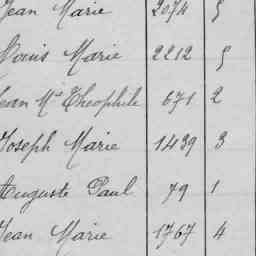 Jean Marie 2074 5
Louis Marie 2212 5
Jean Mie Théophile 671 2
Joseph Marie 1439 3
Auguste Paul 79 1
Jean Marie 1767 4